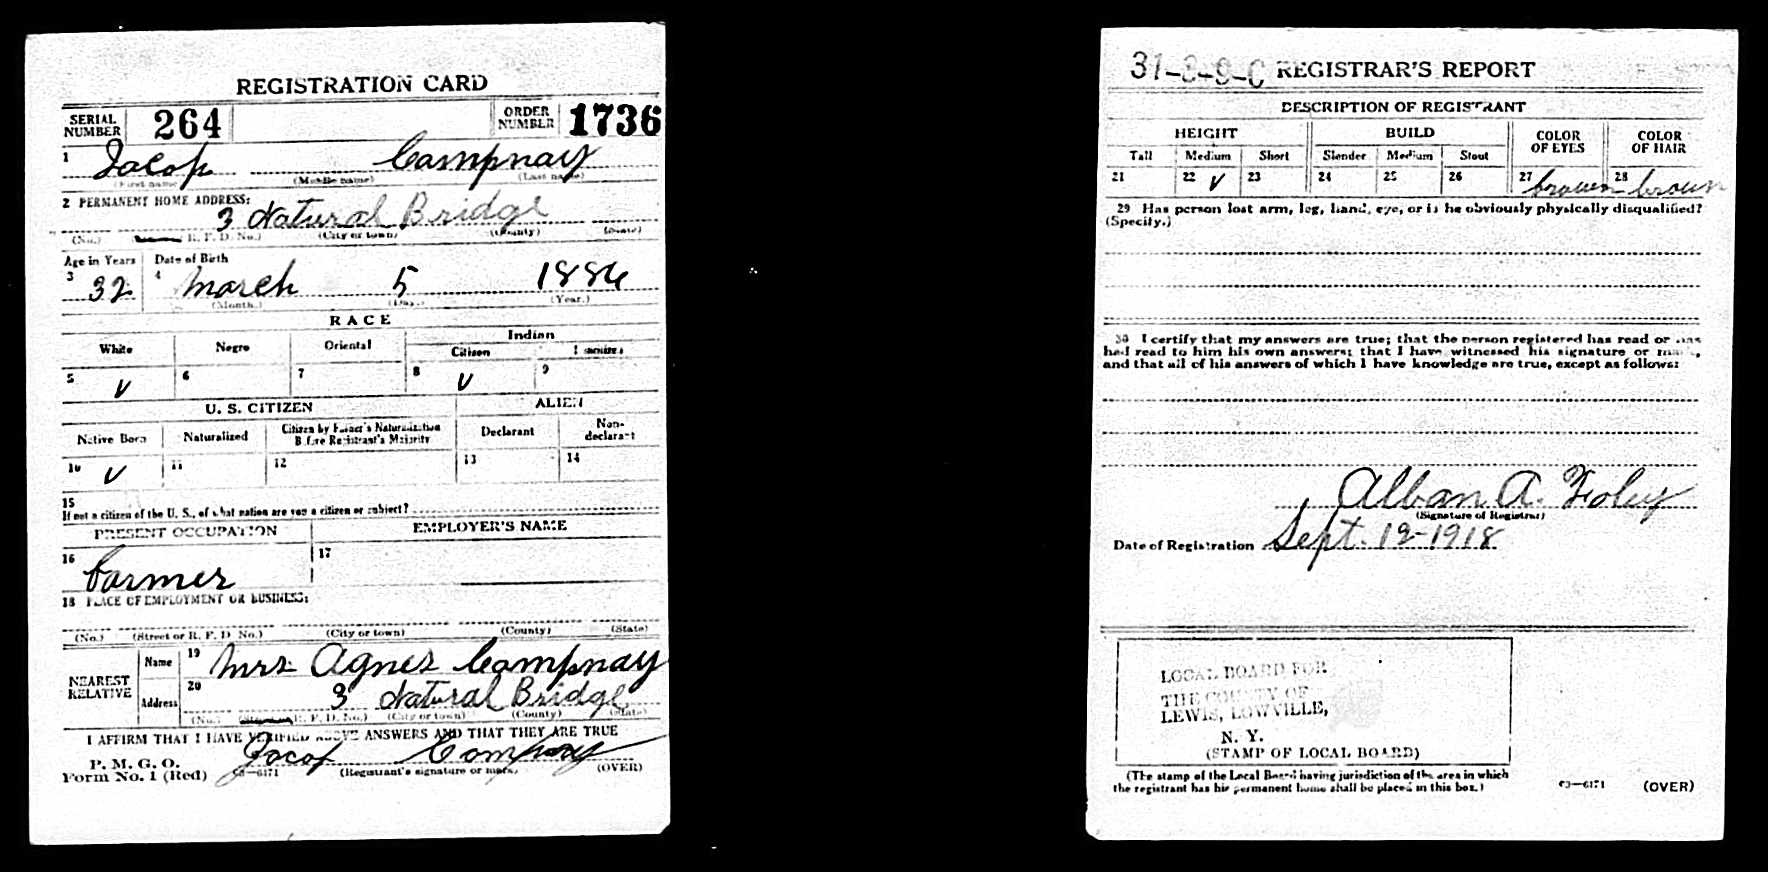 REGISTRATION CARD
SERIAL NUMBER 264 ORDER NUMBER 1736
1 Jacop Campnay
(First name) (Middle name) (Last name)
2 PERMANENT HOME ADDRESS:
3 Natural Bridge
(No.) R. F. D. No.) (City or town) (County) (State)
Age in Years Date of Birth
3 32 4 March 5 1886
(Month.) (Day.) (Year.)
RACE
White Negro Oriental Indian
Citizen
5 V 6 7 8 V 9
U. S. CITIZEN ALIEN
Native Born Naturalized Citizen by Father's Naturalization Before Registrant's Majority Declarant Non-declarant
10 V 11 12 13 14
15
If not a citizen of the U. S., of what nation are you a citizen or subject?
PRESENT OCCUPATION EMPLOYER'S NAME
16 farmer 17
18 PLACE OF EMPLOYMENT OR BUSINESS:
(No.) (Street or R. F. D. No.) (City or town) (County) (State)
NEAREST RELATIVE Name 19 Mrs Agnes Campnay
Address 20 3 Natural Bridge
(No.) R. F. D. No.) (City or town) (County) (State)
I AFFIRM THAT I HAVE VERIFIED ABOVE ANSWERS AND THAT THEY ARE TRUE
P. M. G. O.
Form No. 1 (Red) 03—6171 Jacop Campnay (Registrant's signature or mark) (OVER)
31-3-9-C REGISTRAR'S REPORT
DESCRIPTION OF REGISTRANT
HEIGHT BUILD COLOR OF EYES COLOR OF HAIR
Tall Medium Short Slender Medium Stout
21 22 V 23 24 25 26 27 brown 28 brown
29 Has person lost arm, leg, hand, eye, or is he obviously physically disqualified?
(Specify.)
30 I certify that my answers are true; that the person registered has read or has
had read to him his own answers; that I have witnessed his signature or mark,
and that all of his answers of which I have knowledge are true, except as follows:
Alban A. Foley
(Signature of Registrar)
Date of Registration Sept. 12-1918
LOCAL BOARD FOR
THE COUNTY OF
LEWIS, LOWVILLE,
N. Y.
(STAMP OF LOCAL BOARD)
(The stamp of the Local Board having jurisdiction of the area in which
the registrant has his permanent home shall be placed in this box.)
03—6171 (OVER)